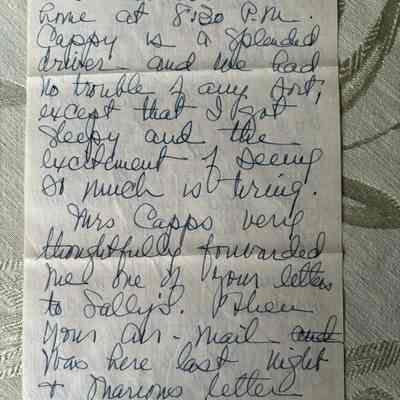 home at 8:30 P.M.
Cappy is a splendid
driver and we had
no trouble of any sort,
except that I got
sleepy and the
excitement of seeing
so much is tiring.
Mrs Capps very
thoughtfully forwarded
me one of your letters
to Sally's. Then
your air-mail and
was here last night
& Marion's letter